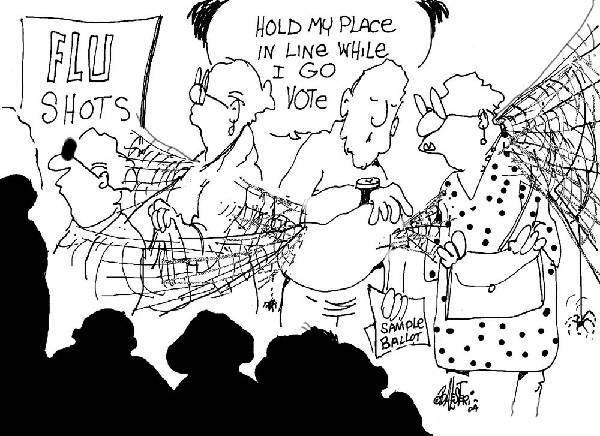 FLU
SHOTS
HOLD MY PLACE
IN LINE WHILE
I GO
VOTE
SAMPLE
BALLOT